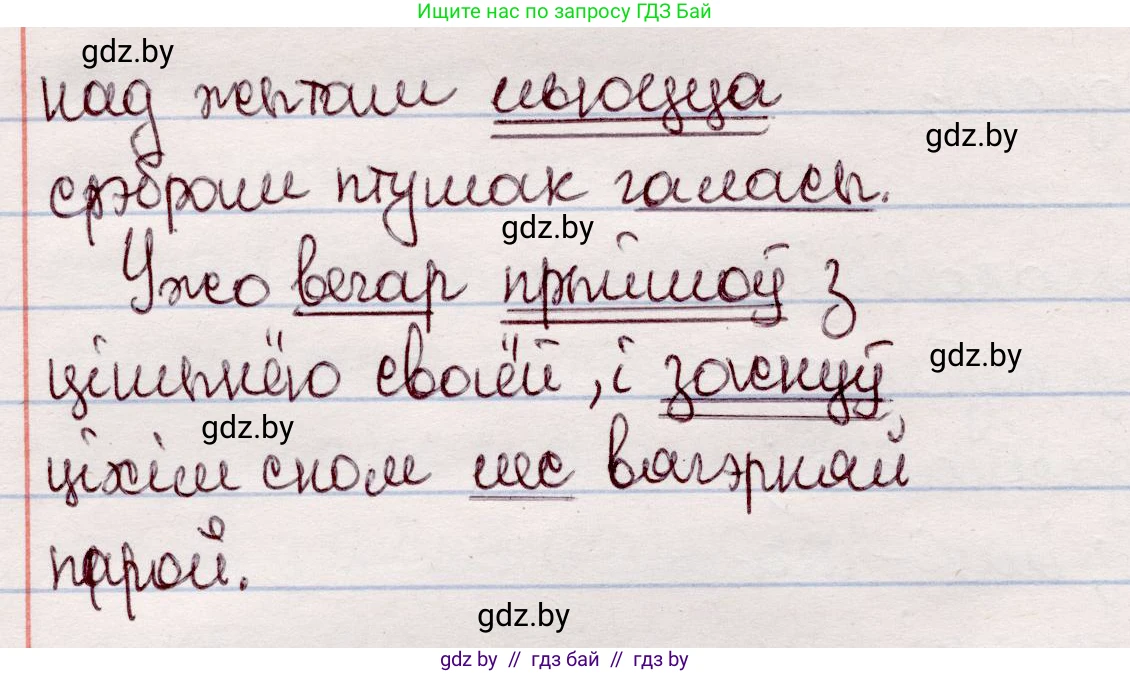 Ищите нас по запросу ГДЗ Бай
gdz.by
над жытам ільюцца
gdz.by
срэбрам птушак галасы.
gdz.by
Ужо вечар прыйшоў з
цішынёю сваёй, і заснуў
gdz.by
gdz.by
ціхім сном лес вячэрняй
парой.
gdz.by
gdz by // гдз бай // гдз by